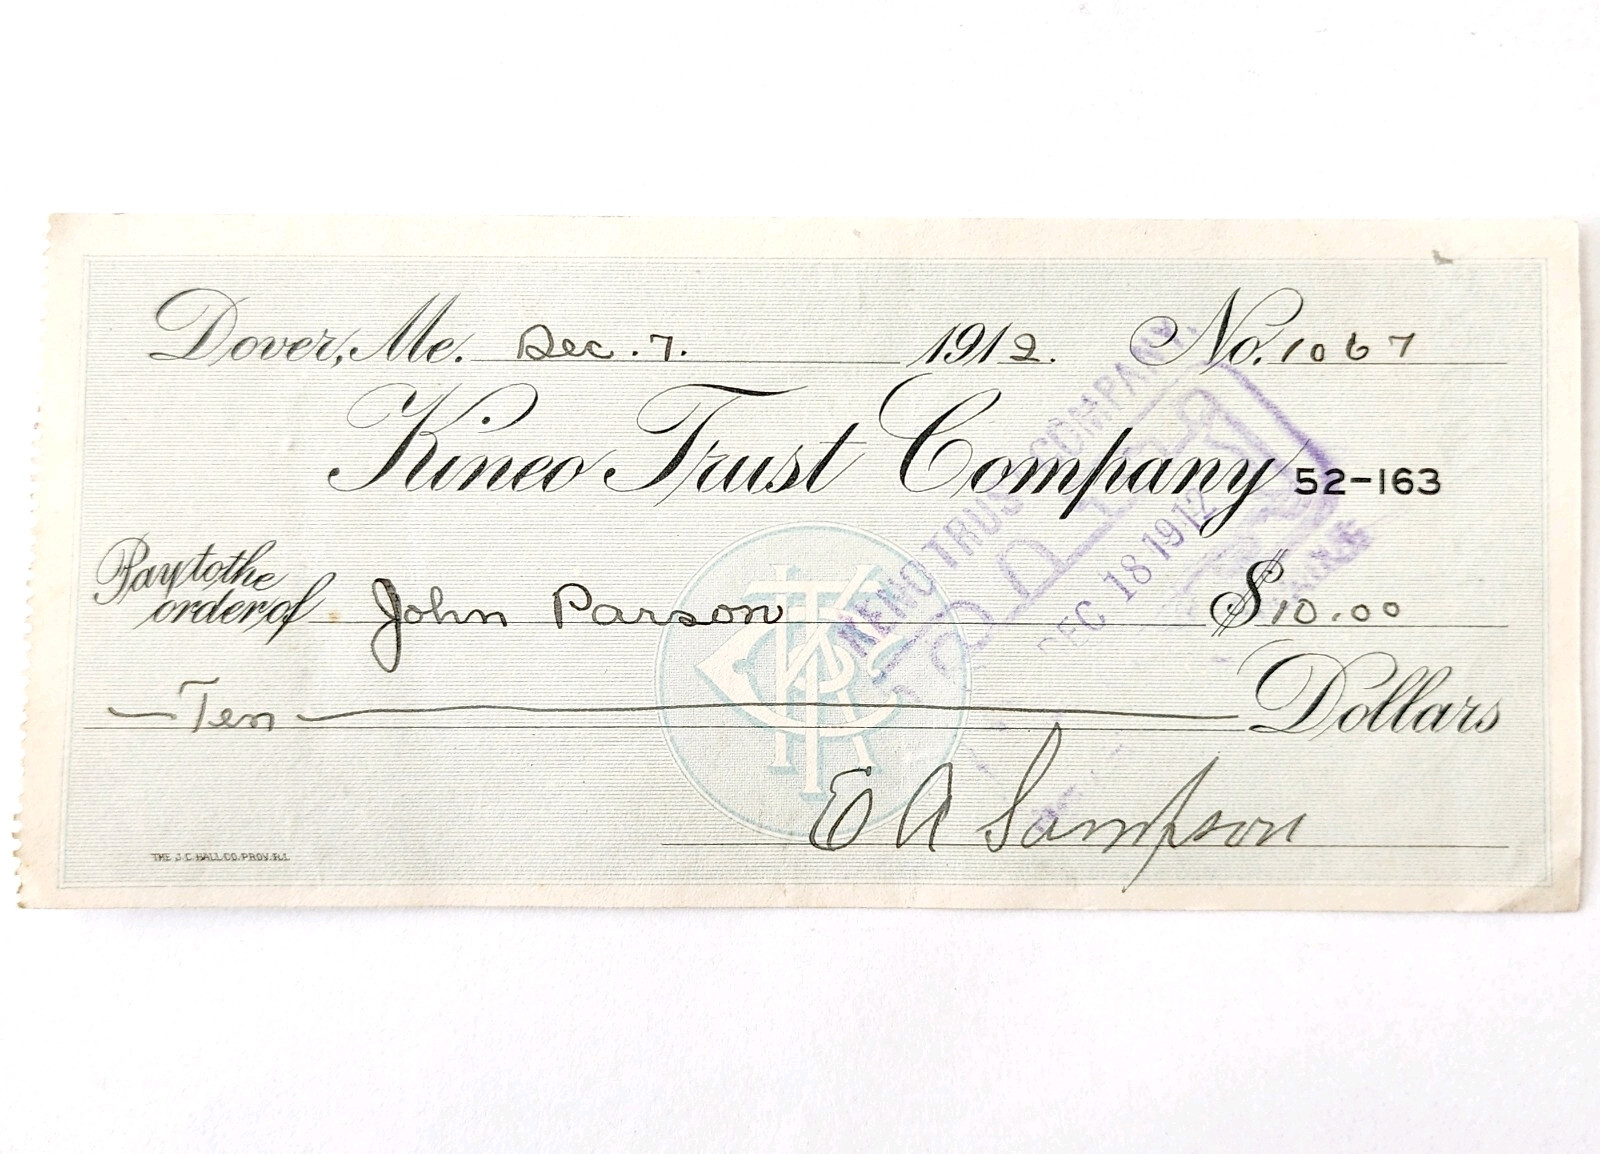 Dover, Me. Dec. 7. 1912. No. 1067
Kineo Trust Company 52-163
Pay to the
order of John Parson $10.00
Ten Dollars
E A Sampson
THE J.C. HALL CO. PROV. R.I.
KENO TRUST COMPANY,
PAID
DEC 18 1912
KTC